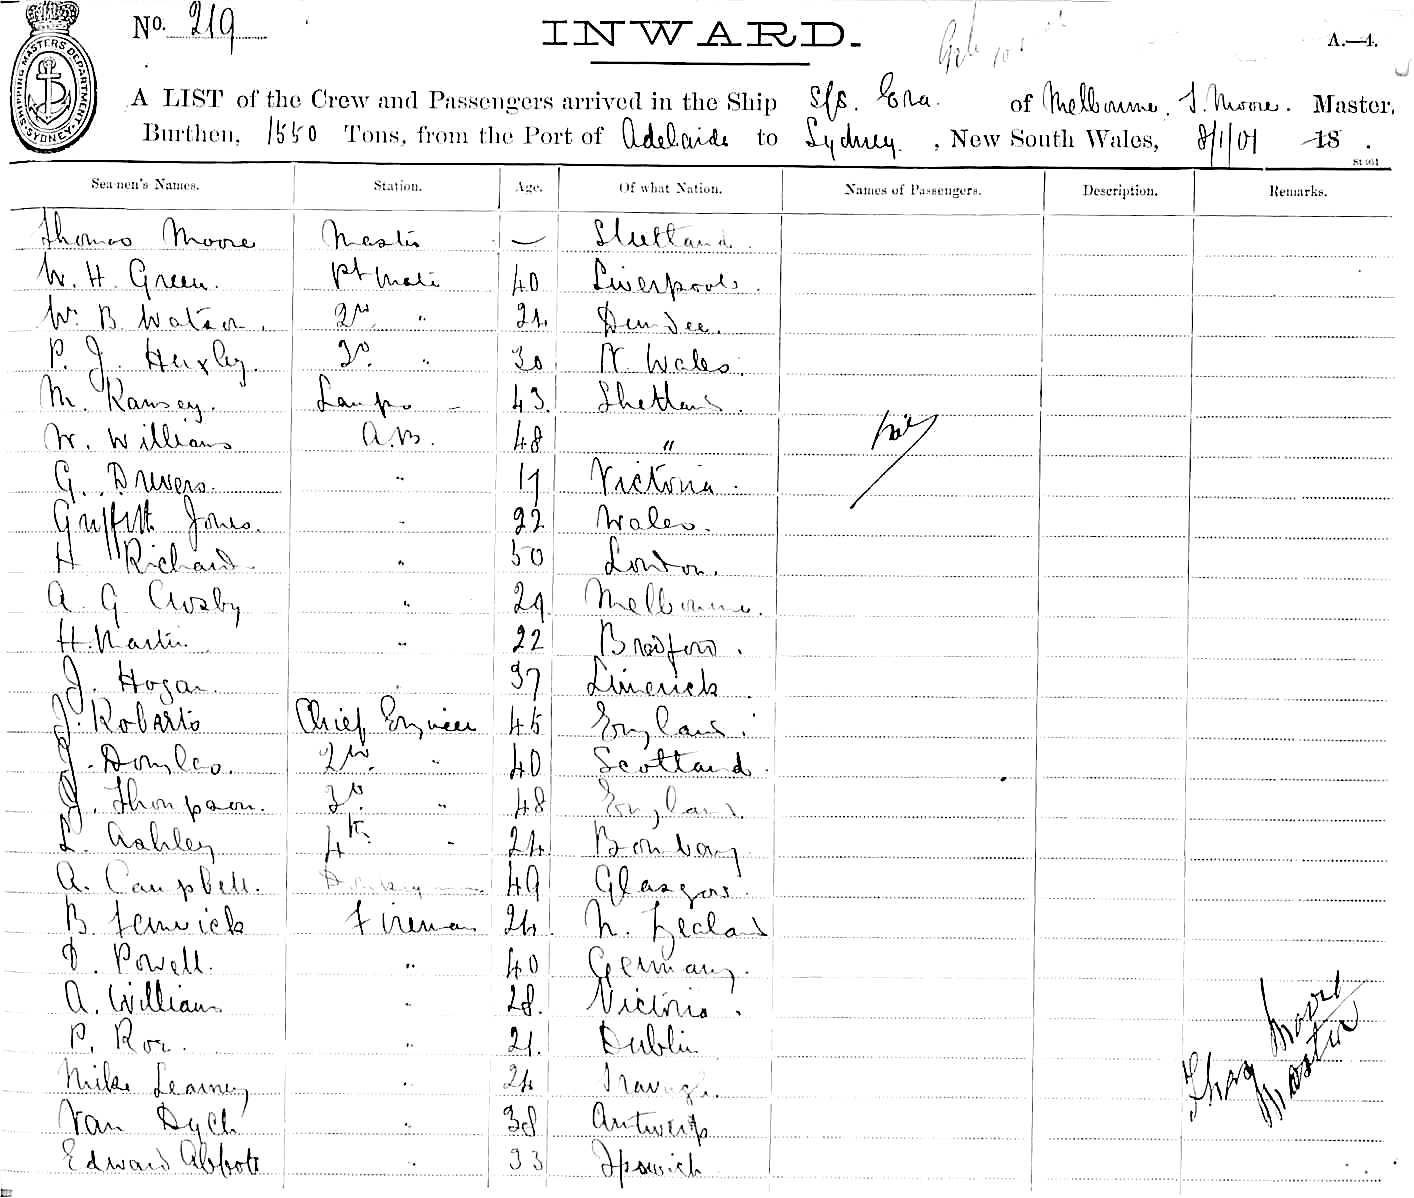 No. 219
INWARD.
A.—4.
SHIPPING MASTERS DEPARTMENT SYDNEY
A LIST of the Crew and Passengers arrived in the Ship S/S. Era. of Melbourne, T. Moore. Master,
Burthen, 1550 Tons, from the Port of Adelaide to Sydney. , New South Wales, 8/1/01 18 .
Seamen's Names. Station. Age. Of what Nation. Names of Passengers. Description. Remarks.
Thomas Moore Master — Shetland.
W. H. Green. 1st Mate 40 Liverpool.
W. B. Watson. 2nd " 24 Dundee.
P. J. Huxley. 3d. " 30 N. Wales.
M. Ramsey. Lamps — 43. Shetland.
W. Williams A.B. 48 " Nil
G. Drivers. " 17 Victoria.
Griffith Jones. " 22 Wales.
H Richard " 50 London.
A G Crosby " 29. Melbourne.
H. Martin " 22 Bradford.
J. Hogan. " 37 Limerick
J. Roberts Chief Engineer 45 England.
J. Douglas. 2nd. " 40 Scotland.
J. Thompson. 3d. " 48 England.
L. Ashley 4th " 24. Bombay
A. Campbell. Donkeyman 49 Glasgow.
B. Fenwick Fireman 24. N. Zealand
D. Powell. " 40 Germany.
A. Williams " 28. Victoria.
P. Roe. " 21. Dublin
Mike Learney " 24
Van Dych " 38 Antwerp
Edward Abbott " 33 Ipswich
Thos Moore
Master